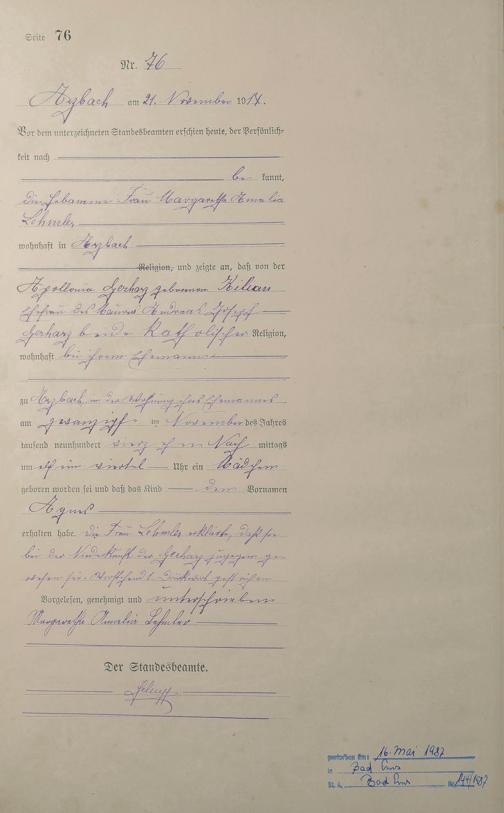 Seite 76
Nr. 76
Arzbach am 21. November 1914.
Vor dem unterzeichneten Standesbeamten erschien heute, der Persönlich-
keit nach
be kannt,
die Hebamme Frau Margaretha Amalia
Lehmler
wohnhaft in Arzbach
Religion, und zeigte an, daß von der
Apollonia Gerharz geborenen Kilian
Ehefrau des Andreas Joseph
Gerharz beide katholischer Religion,
wohnhaft bei ihrem Ehemanne
zu Arzbach in der Wohnung ihres Ehemannes
am zwanzigsten November des Jahres
tausend neunhundert vierzehn Nach mittags
um elf ein viertel Uhr ein Mädchen
geboren worden sei und daß das Kind den Vornamen
Agnes
erhalten habe. Die Frau Lehmler erklärte, daß sie
bei der Niederkunft der Gerharz zugegen ge-
wesen sei. Vorstehend Druckwort gestrichen
Vorgelesen, genehmigt und unterschrieben
Margaretha Amalia Lehmler
Der Standesbeamte.
gestorben am: 16. Mai 1987
in Bad Ems
St. A. Bad Ems Nr.